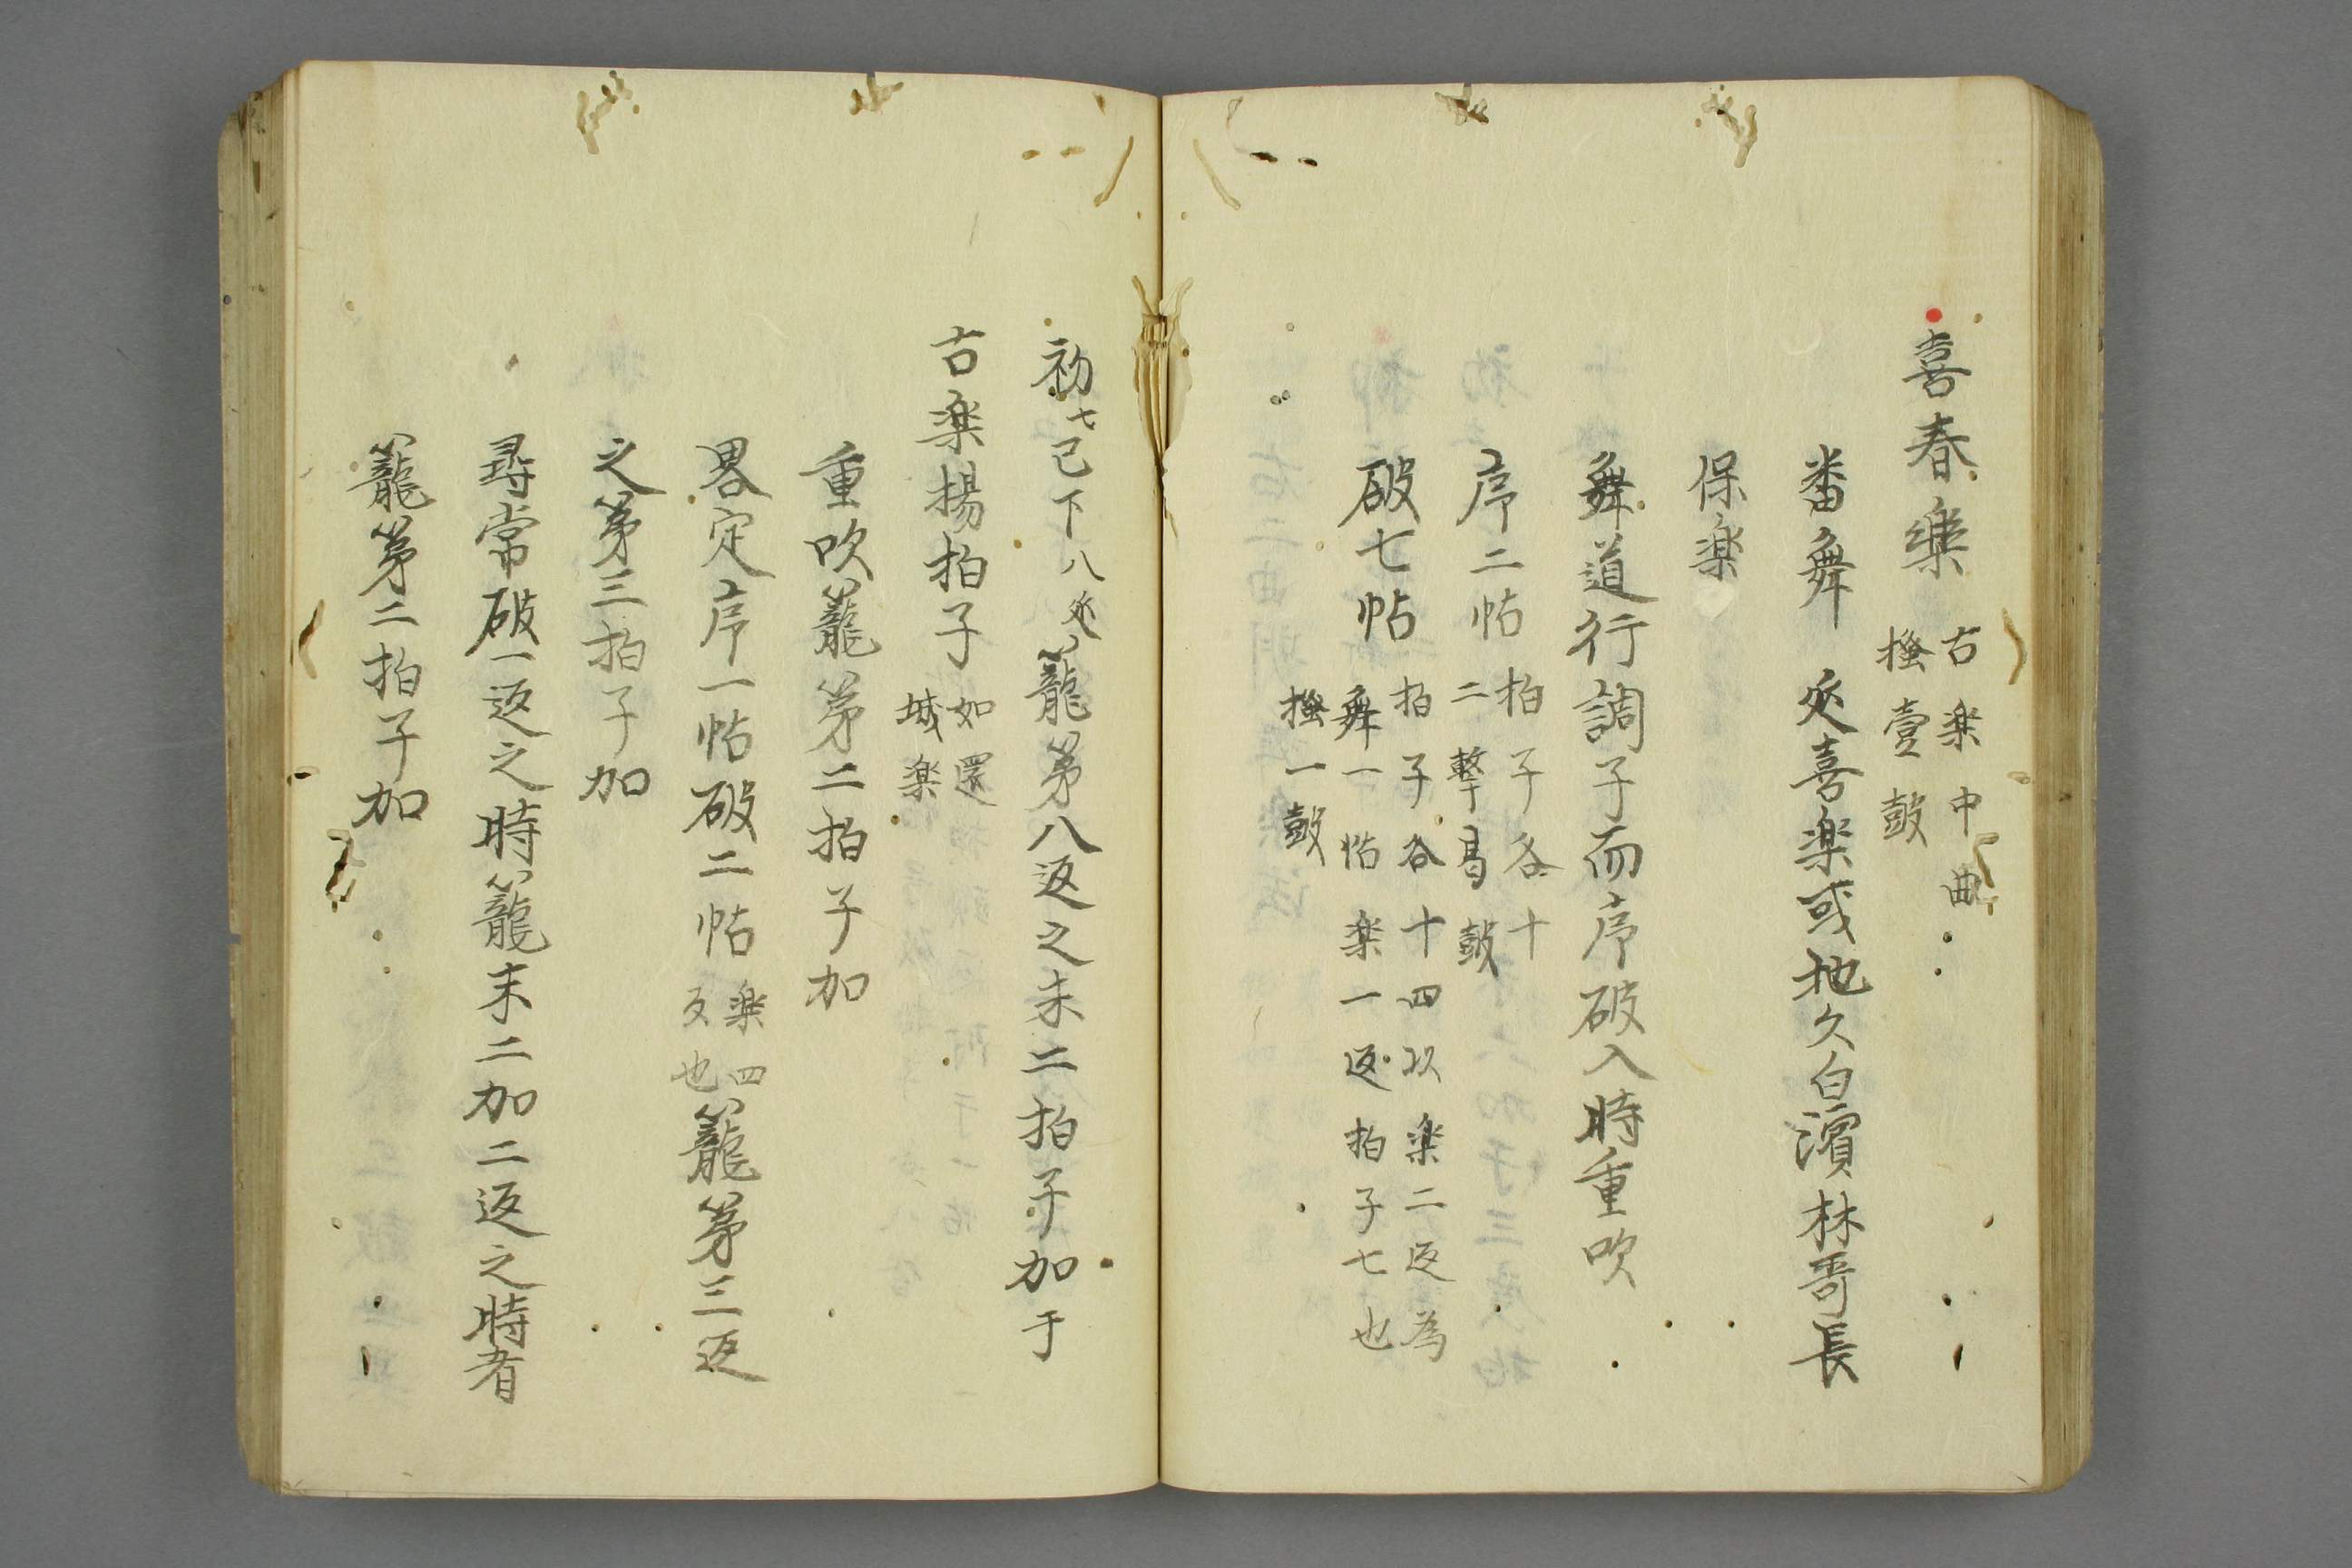 喜春樂 古楽中曲
搔壹鼓
番舞 㱏喜楽或地久白濱林哥長
保楽
舞道行調子而序破入時重吹
序二帖 拍子各十
二撃曷鼓
破七帖 拍子各十四以楽二返為
舞一帖楽一返拍子七也
搔一鼓
初七已下八㱏籠第八返之末二拍子加于
古楽揚拍子 如還
城楽
重吹籠第二拍子加
畧定序一帖破二帖 楽四
反也 籠第三返
之第三拍子加
尋常破一返之時籠末二加二返之時者
籠第二拍子加